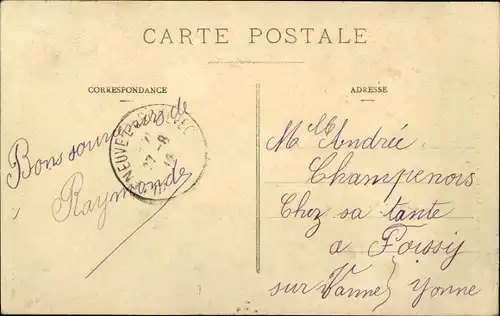 CARTE POSTALE
CORRESPONDANCE
Bons souvenirs de
Raymonde
ADRESSE
Mlle Andrée
Champenois
Chez sa tante
a Foissy
sur Vanne Yonne